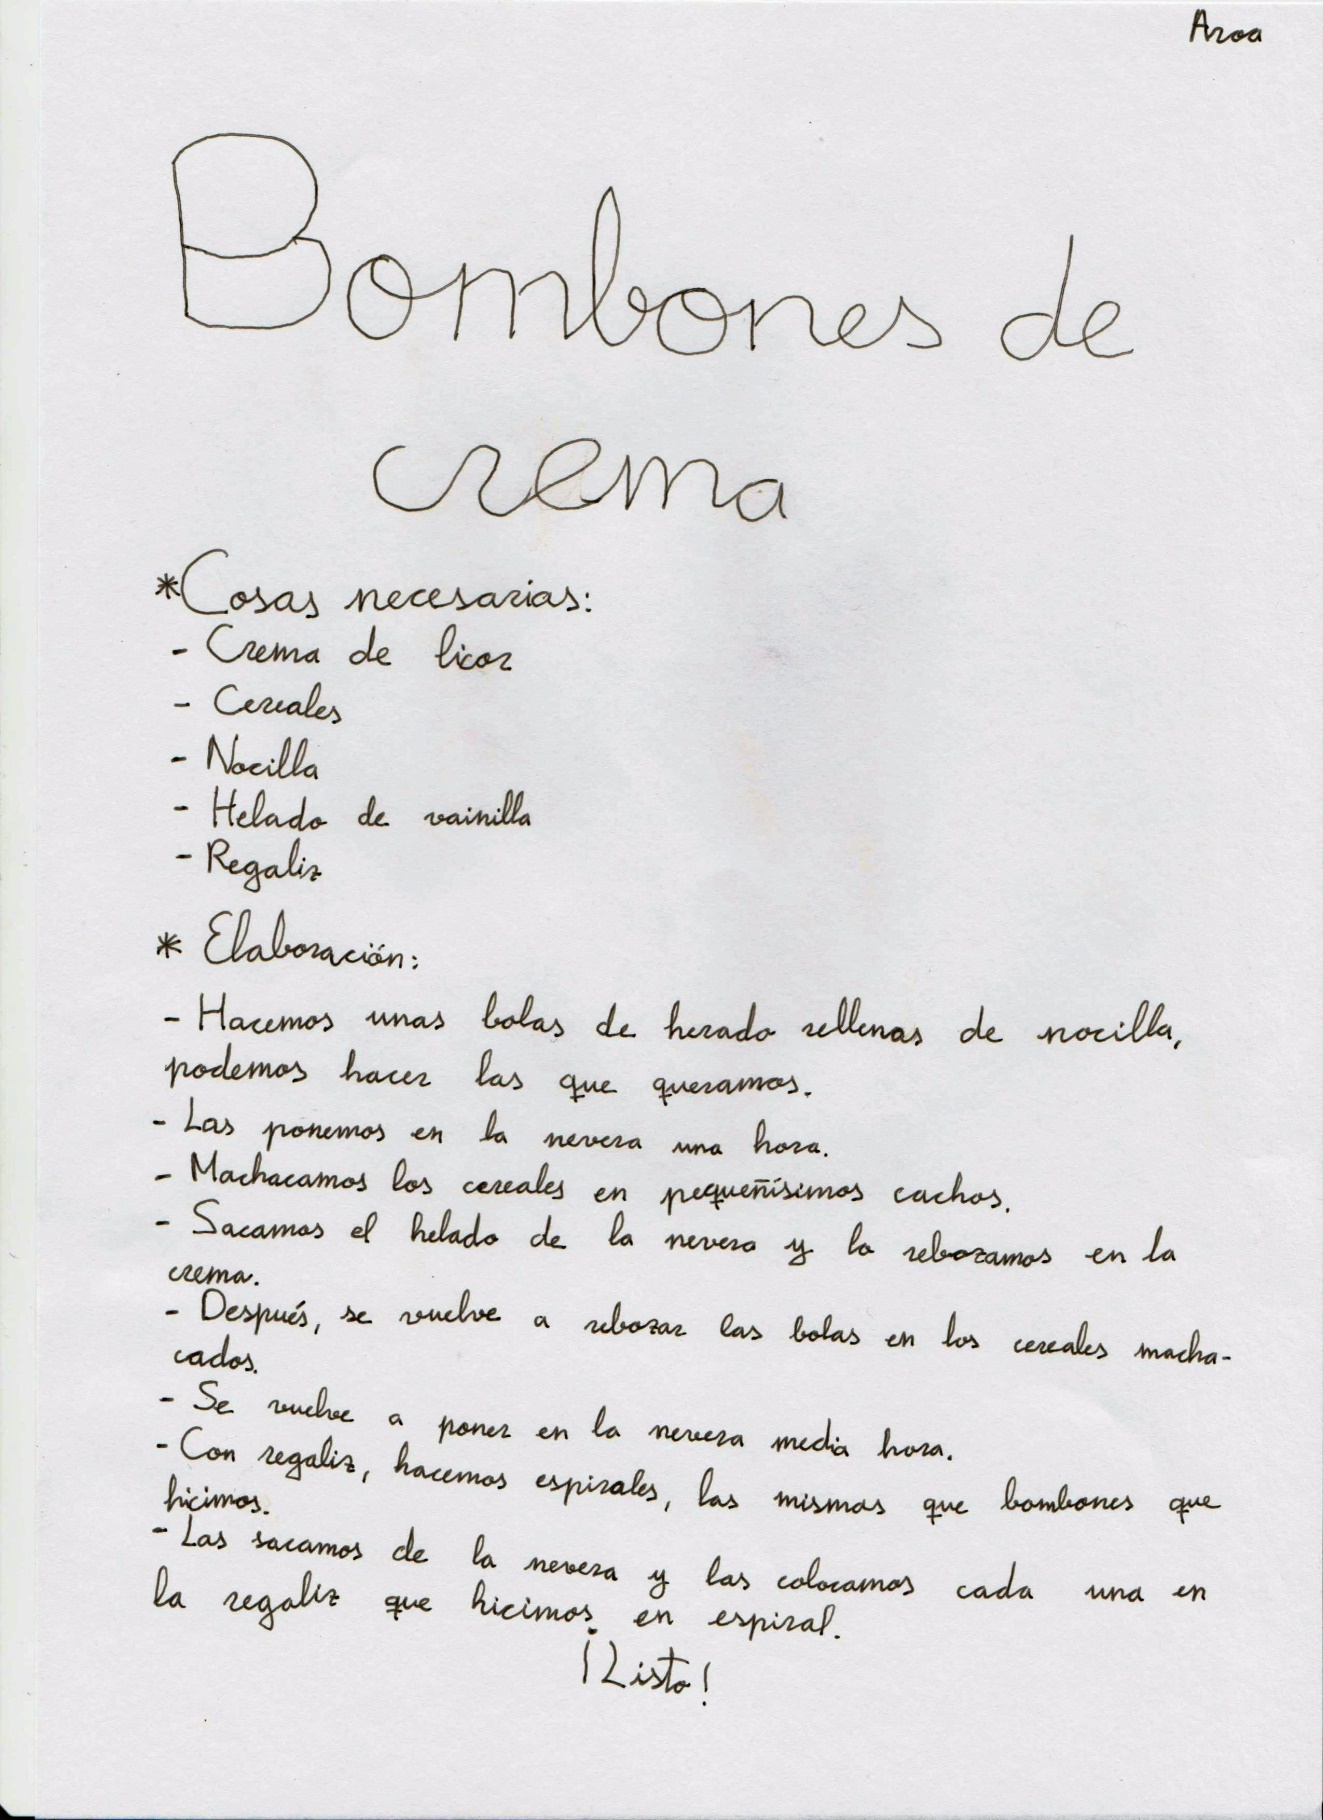 Aroa
Bombones de
crema
*Cosas necesarias:
- Crema de licor
- Cereales
- Nocilla
- Helado de vainilla
- Regaliz
* Elaboración:
- Hacemos unas bolas de herado rellenas de nocilla,
podemos hacer las que queramos.
- Las ponemos en la nevera una hora.
- Machacamos los cereales en pequeñísimos cachos.
- Sacamos el helado de la nevera y lo rebozamos en la
crema.
- Después, se vuelve a rebozar las bolas en los cereales macha-
cados.
- Se vuelve a poner en la nevera media hora.
- Con regaliz, hacemos espirales, las mismas que bombones que
hicimos.
- Las sacamos de la nevera y las colocamos cada una en
la regaliz que hicimos en espiral.
¡Listo!